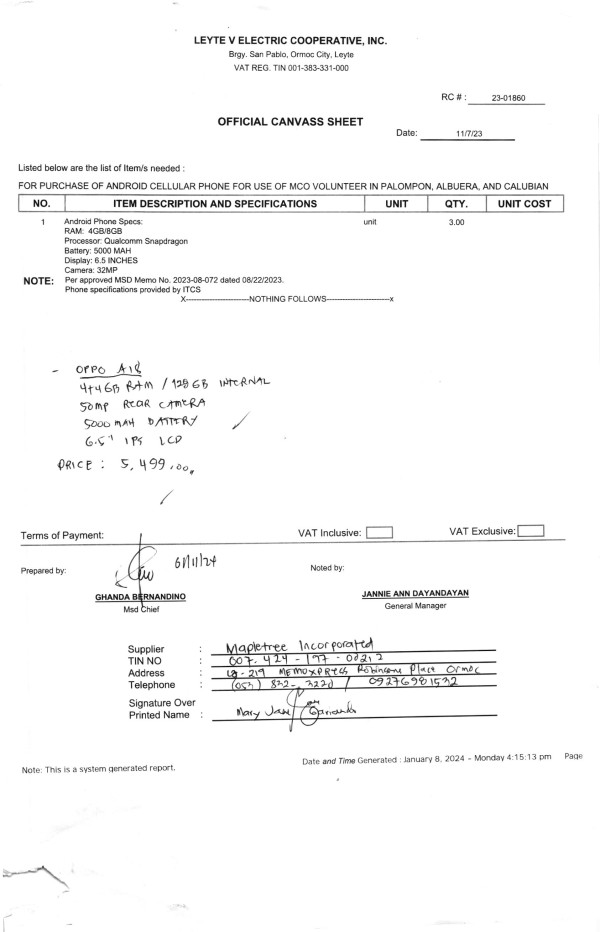 LEYTE V ELECTRIC COOPERATIVE, INC.
Brgy. San Pablo, Ormoc City, Leyte
VAT REG. TIN 001-383-331-000
RC # : 23-01860
OFFICIAL CANVASS SHEET
Date: 11/7/23
Listed below are the list of Item/s needed :
FOR PURCHASE OF ANDROID CELLULAR PHONE FOR USE OF MCO VOLUNTEER IN PALOMPON, ALBUERA, AND CALUBIAN
NO. ITEM DESCRIPTION AND SPECIFICATIONS UNIT QTY. UNIT COST
1 Android Phone Specs: unit 3.00
RAM: 4GB/8GB
Processor: Qualcomm Snapdragon
Battery: 5000 MAH
Display: 6.5 INCHES
Camera: 32MP
NOTE: Per approved MSD Memo No. 2023-08-072 dated 08/22/2023.
Phone specifications provided by ITCS
X-----------------------NOTHING FOLLOWS-----------------------x
- OPPO
4+4GB RAM / 128GB INTERNAL
50MP REAR CAMERA
5000 MAH BATTERY
6.5" IPS LCD
PRICE : 5,499.00
Terms of Payment: VAT Inclusive: VAT Exclusive:
Prepared by: Noted by:
GHANDA BERNANDINO JANNIE ANN DAYANDAYAN
Msd Chief General Manager
Supplier : Mapletree Incorporated
TIN NO : 007-424-197-
Address : MEMOXPRESS Robinsons Place Ormoc
Telephone : (053) 832-3220 / 09276981532
Signature Over
Printed Name : Mary
Date and Time Generated : January 8, 2024 - Monday 4:15:13 pm Page
Note: This is a system generated report.